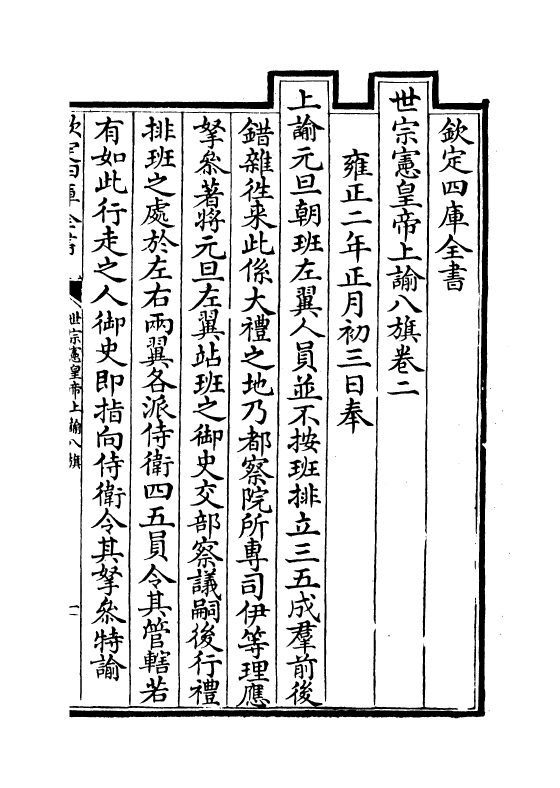 欽定四庫全書
世宗憲皇帝上諭八旗卷二
雍正二年正月初三日奉
上諭元旦朝班左翼人員並不按班排立三五成羣前後
錯雜徃来此係大禮之地乃都察院所專司伊等理應
拏叅著將元旦左翼站班之御史交部察議嗣後行禮
排班之處於左右兩翼各派侍衛四五員令其管轄若
有如此行走之人御史即指向侍衛令其拏叅特諭
欽定四庫全書
世宗憲皇帝上諭八旗
一